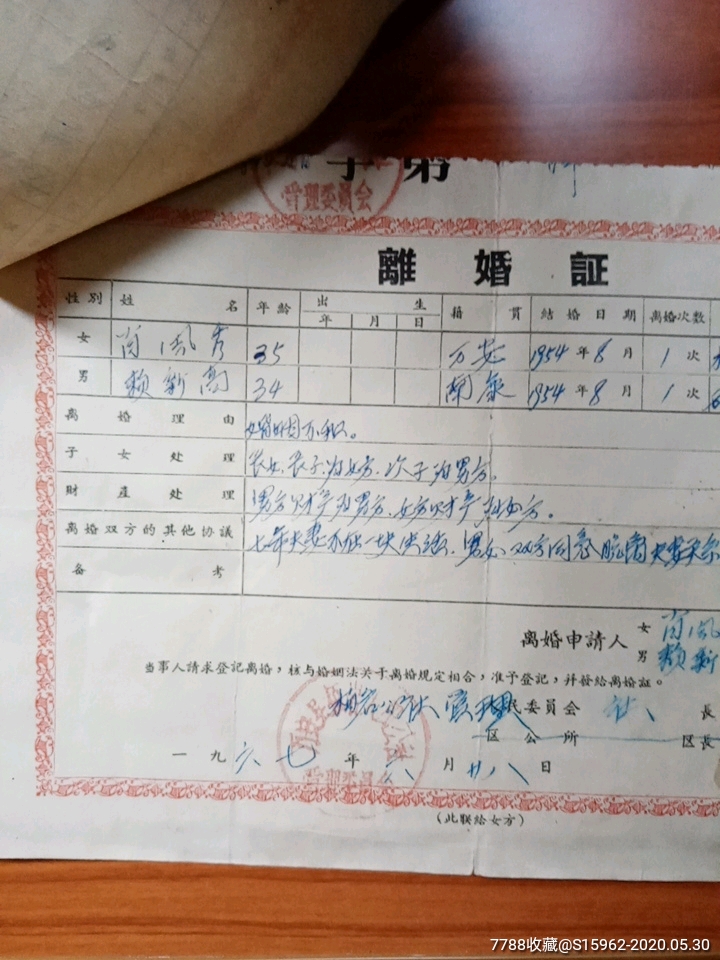 字第
管理委員会
離婚証
性别 姓名 年齡 出生 年 月 日 籍貫 結婚日期 离婚次数
女 肖凤秀 35 万安 1954年8月 1次
男 赖新高 34 南康 1954年8月 1次
离婚理由 婚姻不和。
子女处理 长女、长子归女方、次子归男方。
財產处理 男方财产归男方、女方财产归女方。
离婚双方的其他协議 七年夫妻不在一块生活、男女双方同意脱离夫妻关系
备考
离婚申請人 女 肖凤
男 赖新
当事人請求登記离婚，核与婚姻法关于离婚規定相合，准予登記，幷發給离婚証。
公社管理 民委員会 社 長
区公所 区長
一九六七年六月廿八日
管理委員
(此联給女方)
7788收藏@S15962-2020.05.30